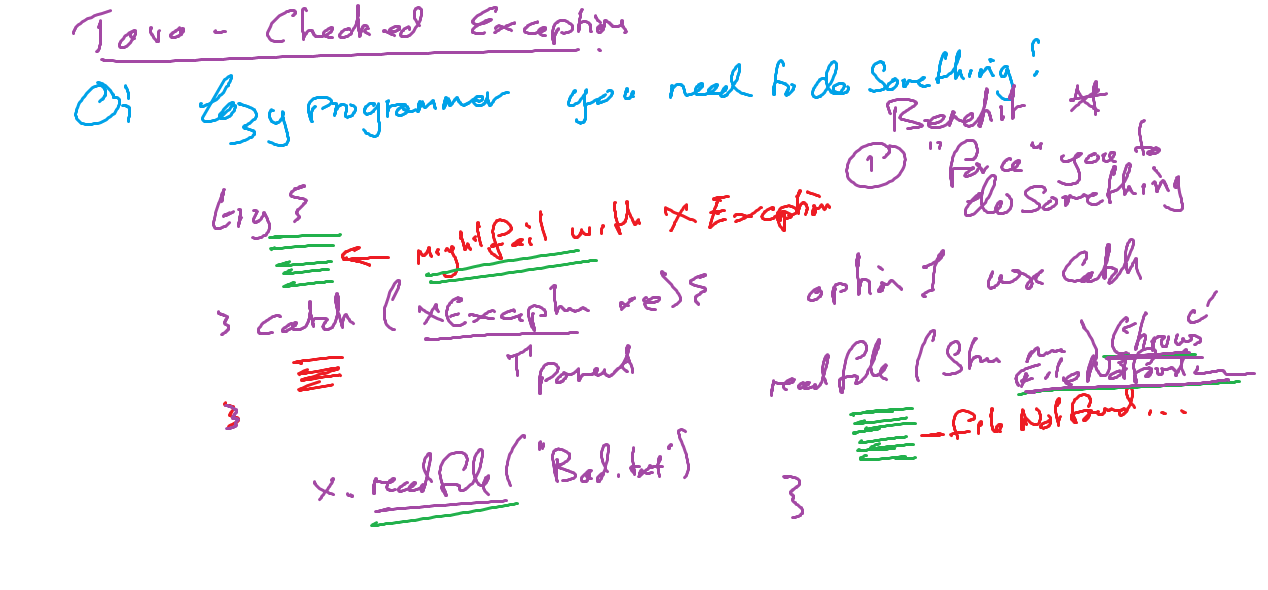 Java - Checked Exceptions
Oi lazy programmer you need to do something!
Benefit *
① "force" you to
do something
try {
← might fail with x Exception
} catch ( xException xe) {
↑ parent
}
x. readfile ("Bad.txt")
option I use Catch
readfile ( ) throws
FileNotFound
- file Not found ...
}